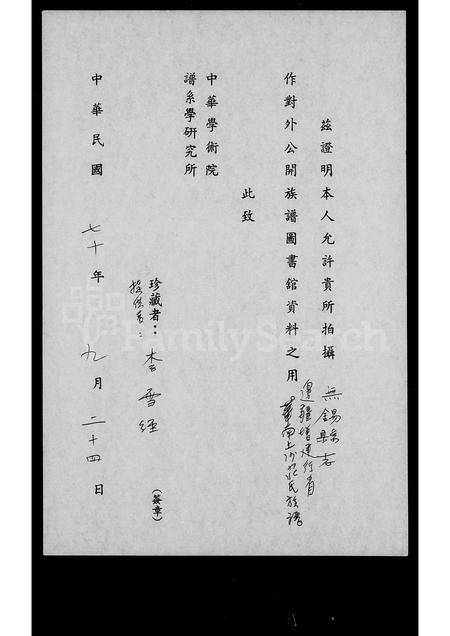 茲證明本人允許貴所拍攝 無錫縣志
邊疆增建行省
華南上沙范氏族譜
作對外公開族譜圖書館資料之用
此致
中華學術院
譜系學研究所
珍藏者：李雪經
提供者：
（簽章）
中華民國 七十年 九月 二十四日
FamilySearch